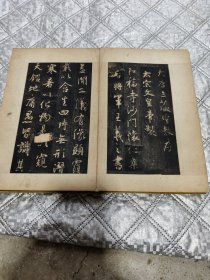 大唐三藏聖教序
太宗文皇帝製
弘福寺沙門懷仁集
晉將軍王羲之書
蓋聞二儀有像顯覆
載以含生四時無形潛
寒暑以化物是以窺
天鑑地庸愚皆識其